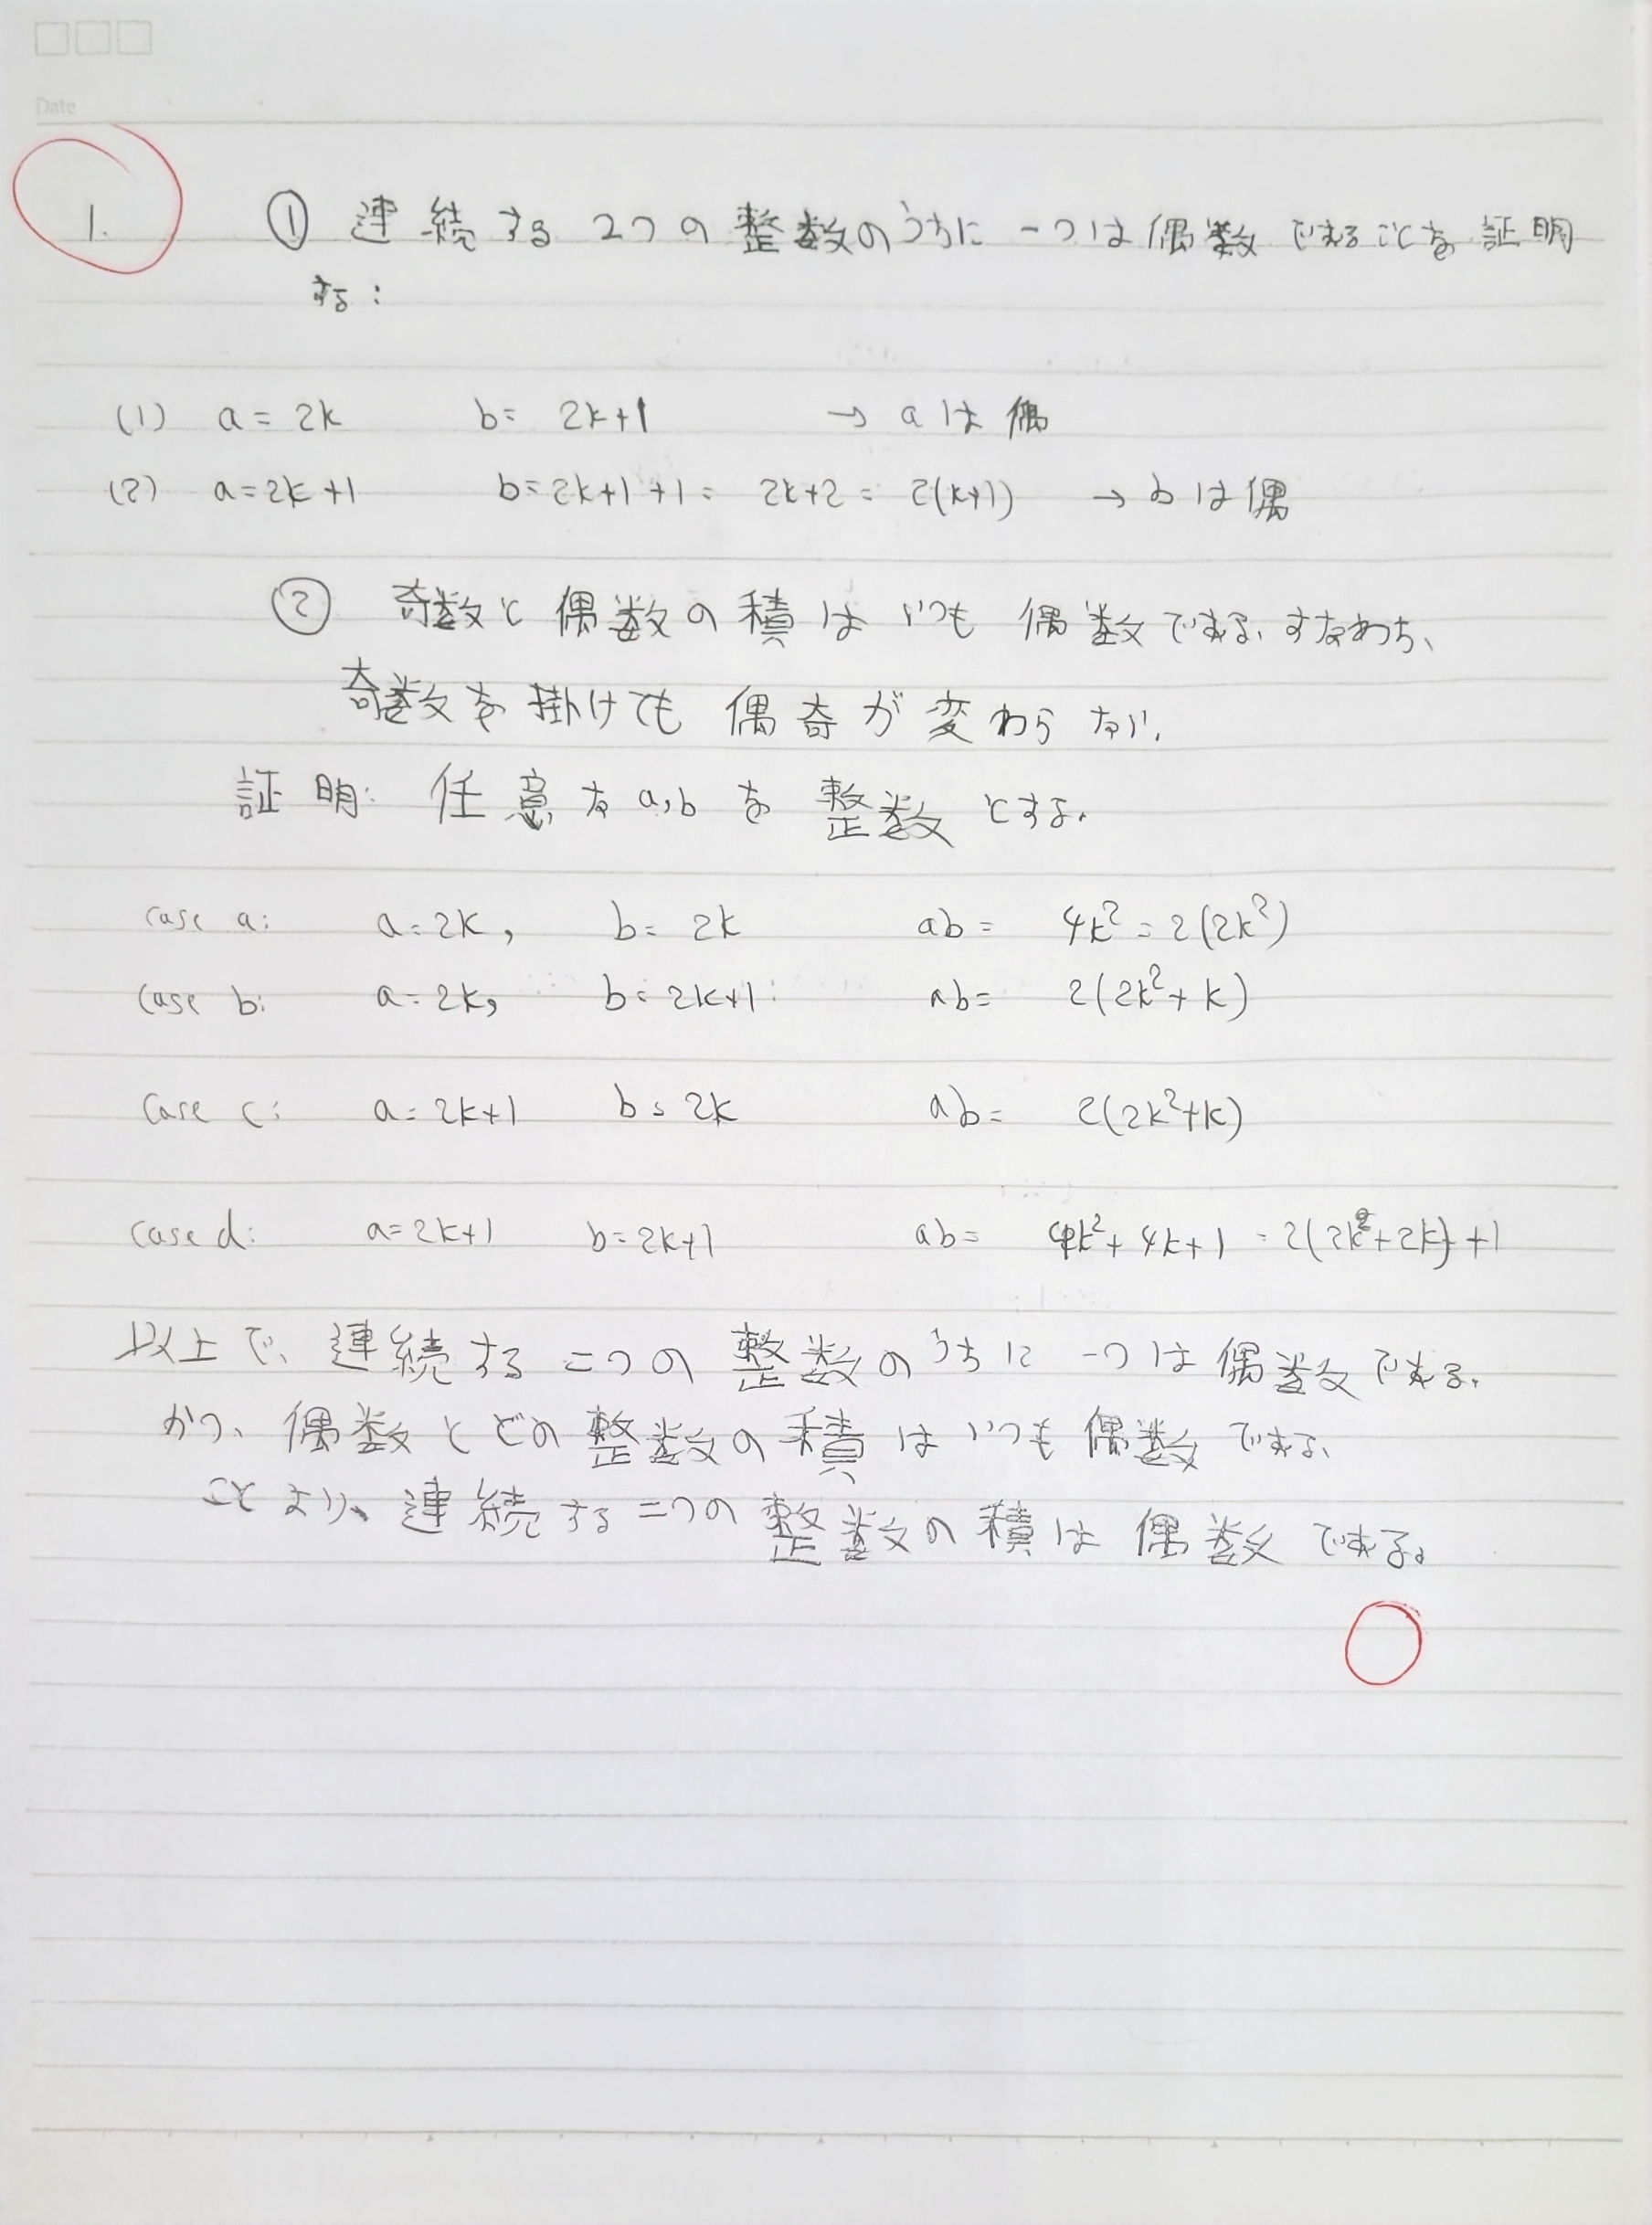 Date
1. ① 連続する2つの整数のうちに一つは偶数であることを証明
する:
(1) a = 2k b= 2k+1 → aは偶
(2) a=2k+1 b=2k+1+1= 2k+2 = 2(k+1) → bは偶
② 奇数と偶数の積はいつも偶数である、すなわち、
奇数を掛けても偶奇が変わらない.
証明: 任意なa,bを整数とする.
case a: a=2k, b= 2k ab= 4k²=2(2k²)
case b: a=2k, b=2k+1 ab= 2(2k²+k)
case c: a=2k+1 b=2k ab= 2(2k²+k)
case d: a=2k+1 b=2k+1 ab= 4k²+4k+1 =2(2k²+2k)+1
以上で、連続する二つの整数のうちに一つは偶数である.
かつ、偶数とどの整数の積はいつも偶数である、
ことより、連続する二つの整数の積は偶数である。